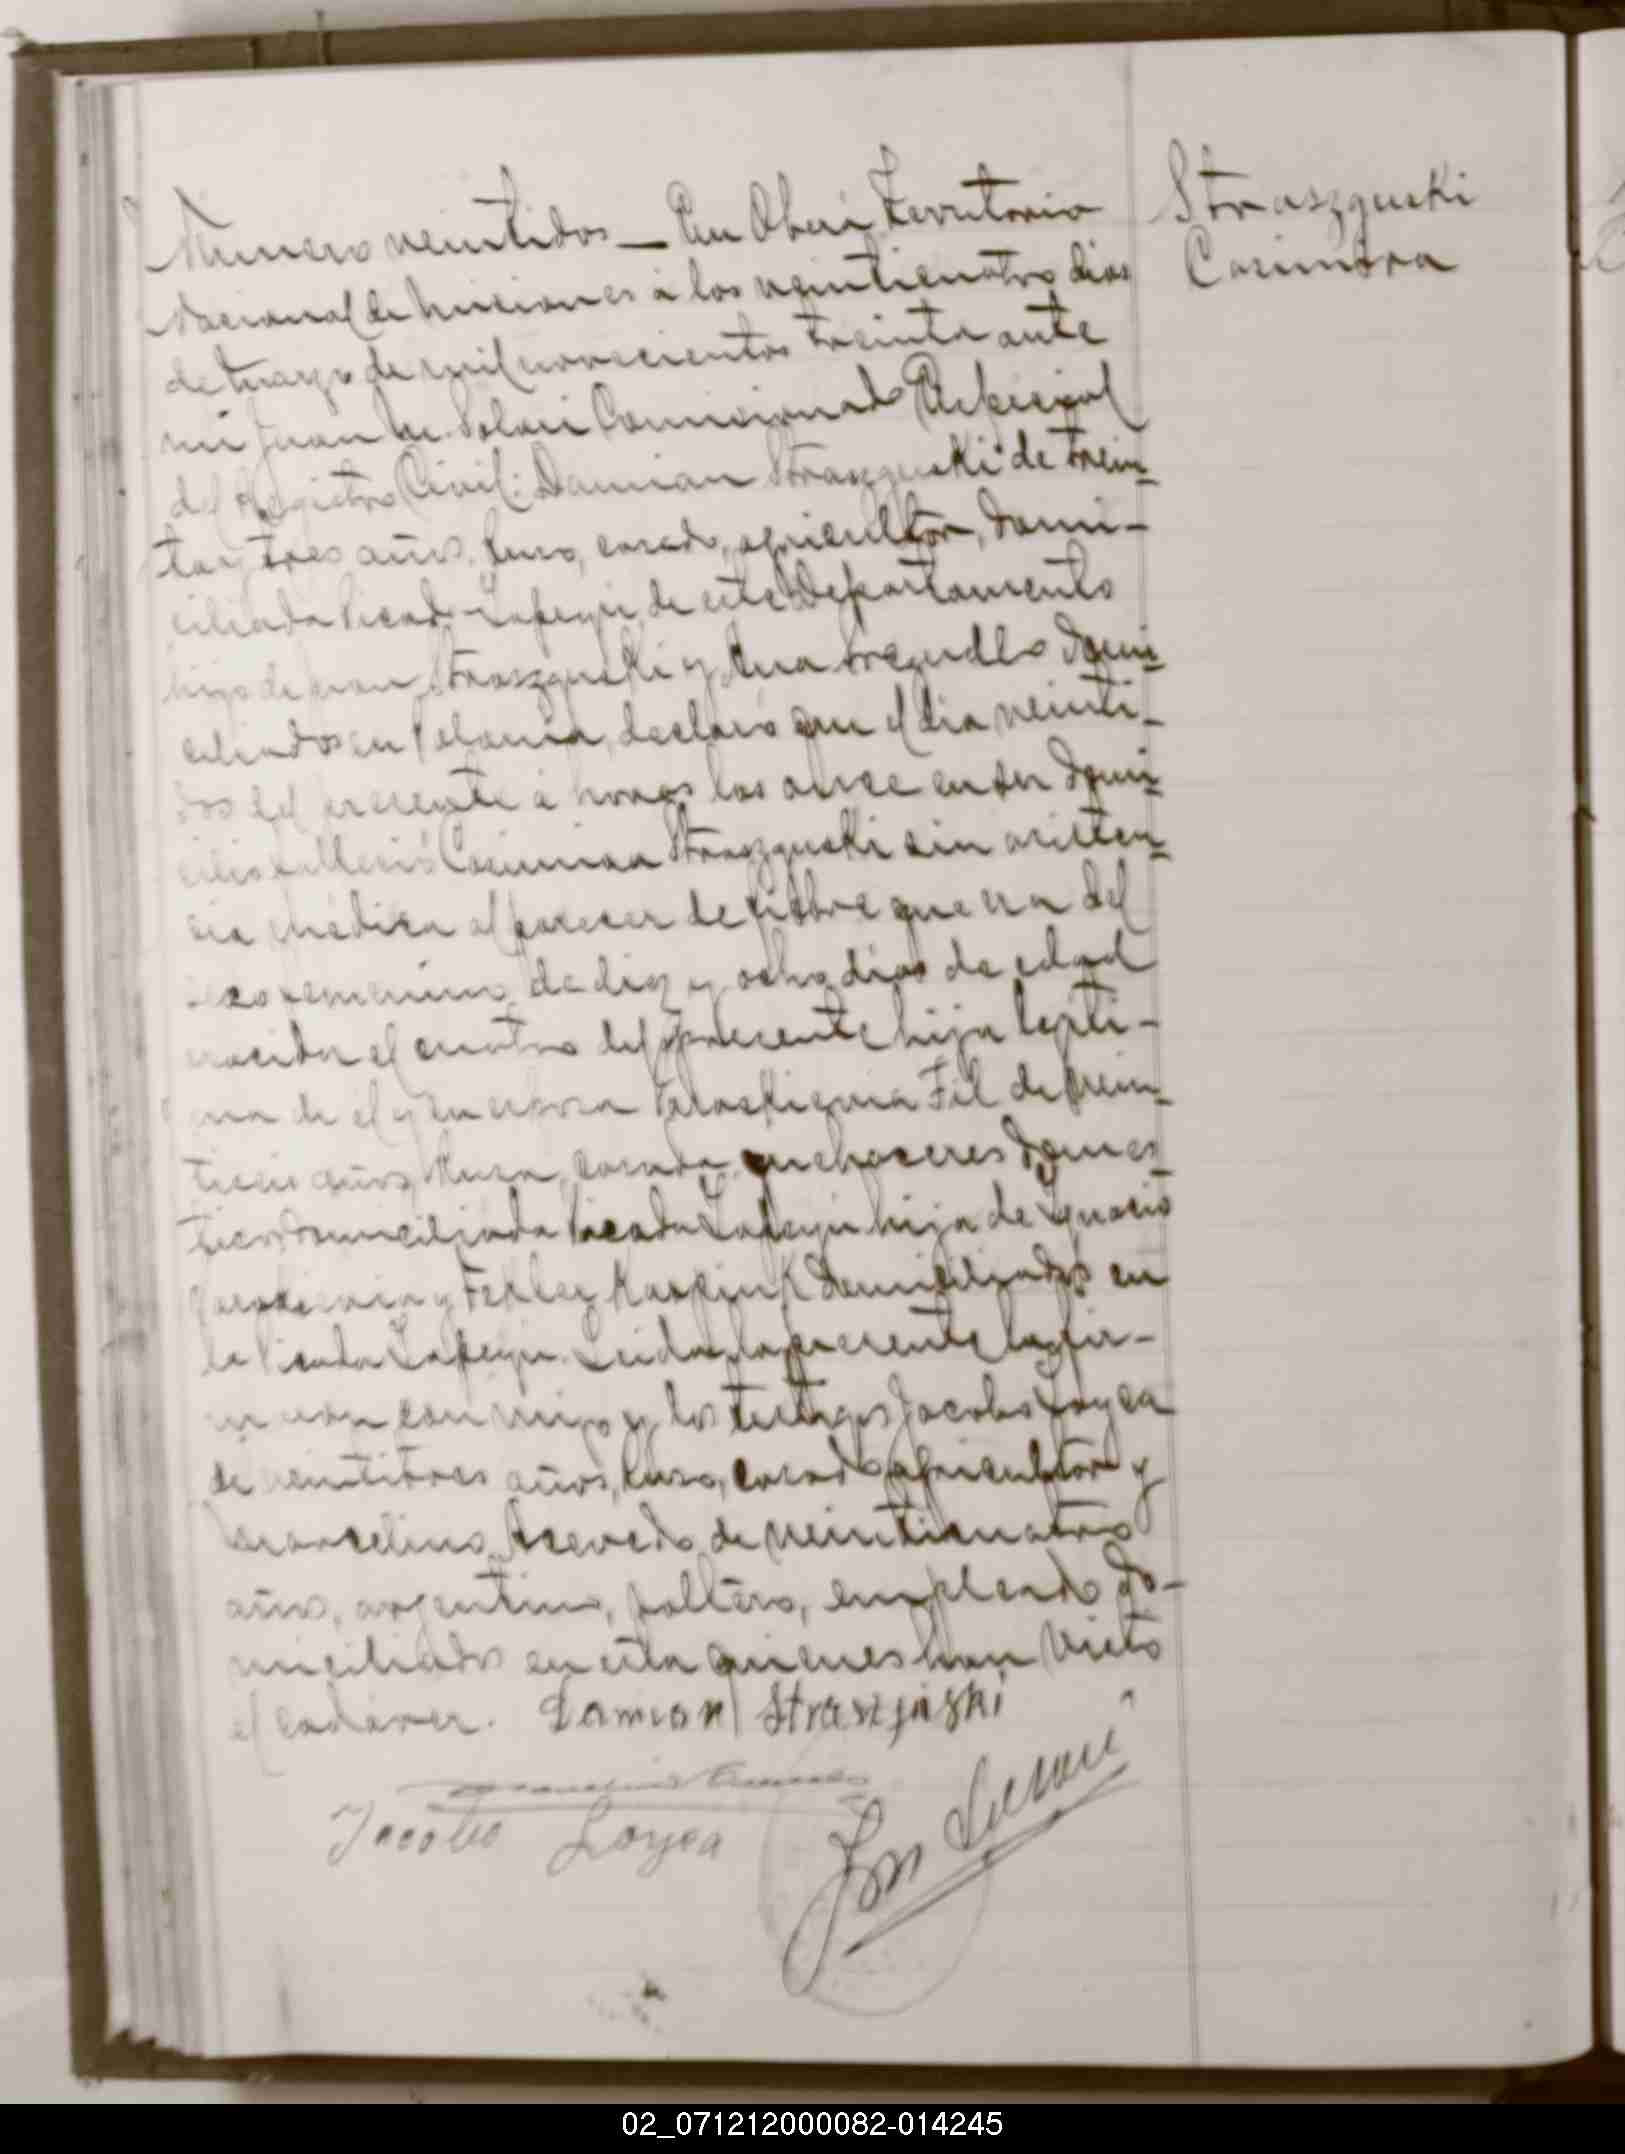 Numero veintidos — En Oberá Territorio
Nacional de Misiones á los veinticuatro dias
de Mayo de mil novecientos treinta ante
mi Juan M. Solari Comisionado Especial
del Registro Civil: Damian Straszguski de trein
ta y tres años, Ruso, casado, agricultor, domi-
ciliado Picada Yapeyú de este Departamento
hijo de Straszguski y Ana domi
ciliados en Polonia, declaró que el dia veinti-
dos del presente á horas las once en su domi
cilio falleció Casimira Straszguski sin asisten
cia médica al parecer de fiebre que era del
sexo femenino, de diez y ocho dias de edad
nacida el cuatro del presente hija legiti-
ma de el y su esposa Fil de vein
años, Rusa, casada, quehaceres domes
ticos domiciliada Picada Yapeyú hija de Ignacio
y domiciliados en
la Picada Yapeyú. Leida la presente la fir-
maron conmigo y los testigos Jacobo Loyca
de veintitres años, Ruso, casado agricultor y
Marcelino Acevedo de veinticuatro
años, argentino, soltero, empleado do-
miciliados en esta quienes han visto
el cadáver. Damian Straszjuski
Jacobo Loyca
Straszguski
Casimira
02_071212000082-014245